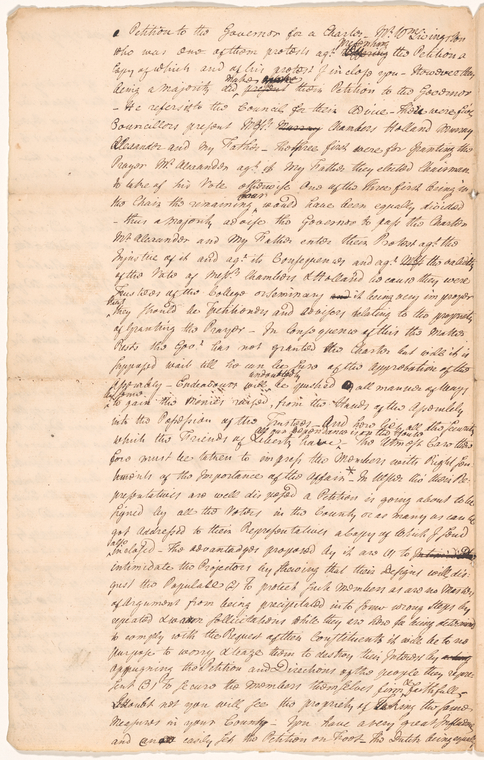 a Petition to the Governor for a Charter - Mr. Wm. Livingston
who was one of them protests agt. preferring the Petition a
Copy of which and of his protest I inclose you - However they
being a majority did make their Petition to the Governor
- He refers it to the Council for their Advice - There were five
Councillors present Messrs. Chambers Holland Murray
Alexander and my Father - The three first were for granting the
Prayer Mr. Alexander agt. it My Father they elected Chairman
to take of his Vote otherwise One of the three first being in
the Chair the remaining four would have been equally divided
- thus a Majority advise the Governor to pass the Charter
Mr. Alexander and My Father enter their Protest agt. the
Injustice of it and agt. its Consequences and agt. the validity
of the Vote of Messrs. Chambers & Holland because they were
Trustees of the College or Seminary it being very improper
that they should be Petitioners and advisers relating to the propriety
of granting the Prayer - In Consequence of this the Matter
rests the Govr. has not granted the Charter but will it is
supposed wait till he can be sure of the approbation of the
Assembly - Endeavours will undoubtedly be pushed all manner of ways
to gain the Monies raised, from the Hands of the Assembly
into the Possession of the Trustees And here lies all the Security
all our dependance is on the House
which the Friends of Liberty have - The utmost Care there
fore must be taken to impress the Members with Right Sen
timents of the Importance of the Affair - In Ulster the their Re
presentatives are well disposed a Petition is going about to be
signed by all the Voters in the County or as many as can be
got addressed to their Representatives a Copy of which I send
inclosed - The advantages proposed by it are (1) to
intimidate the Projectors by shewing that their Designs will dis
gust the Populace (2) To protect such Members as are no Masters
of Argument from being precipitated into some wrong Steps by
repeated & warm sollicitations while they are
to comply with the Request of their Constituents it will be to no
purpose to worry & teaze them to destroy their Interest by
oppugning the Petition and Directions of the people they repre
sent (3) To secure the Members themselves firm & faithfull -
I doubt not you will see the propriety of taking the same
Measures in your County - You have a very great Influence
and can easily set the Petition on Foot - The Dutch being equally